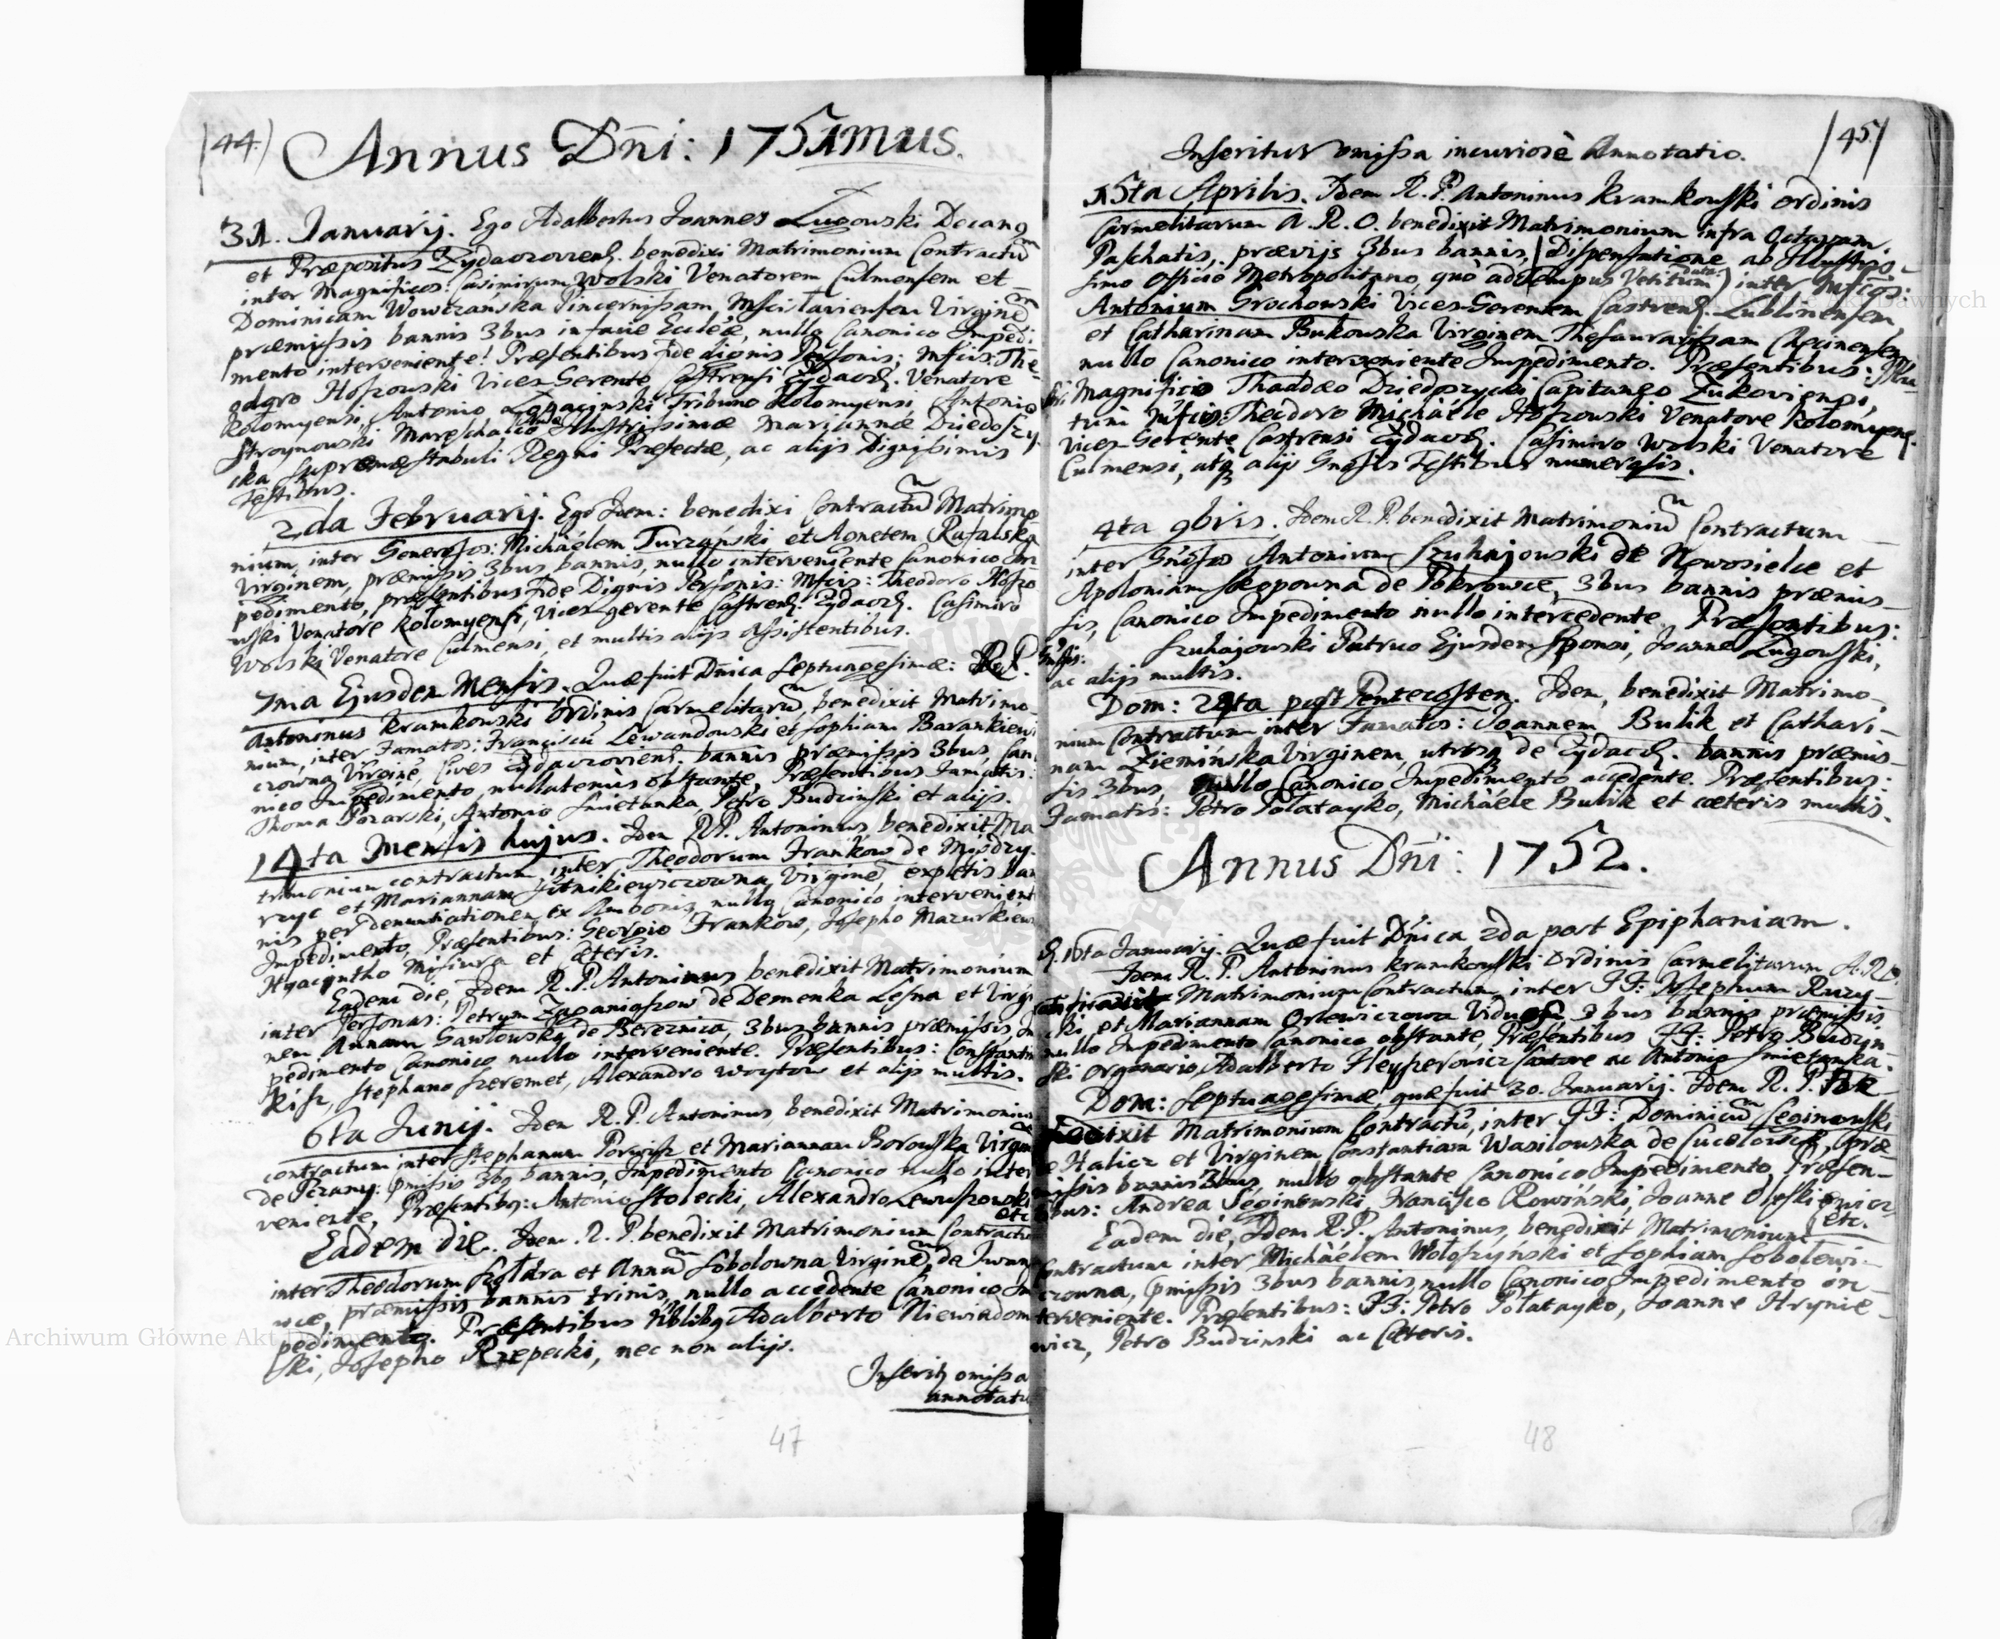 (44.)
Annus Dñi: 1751mus.
31. Januarij. Ego Adalbertus Joannes Lugowski Decang
et Præpositus Zydaczovien. benedixi Matrimonium Contractu
inter Magnificos: Casimirum Wolski Venatorem Culmensem et
Dominicam Wowczańska Pincernissam, Mscislaviensem Virginē
præmissis bannis 3bus in facie Eccľæ, nullo Canonico Impedi-
mento interveniente! Præsentibus fide dignis Personis; Mfcis: The-
odoro Hoszowski Vices-Gerente Castrensi Zydacz. Venatore
Kolomyensi, Antonio Tribuno Kolomyensi, Antonio
Stroynowski Mareschalco Illustrissimæ Mariannæ Dziedoszy-
cka Supræmæ Stabuli Regni Præfectæ, ac alijs Dignissimis
Testibus.
2da Februarij. Ego Idem: benedixi Contractū Matrimo
nium, inter Generosos: Michaëlem Turzański et Agnetem Rafalska
Virginem, præmissis 3bus bannis, nullo interveniente Canonico Im-
pedimento, præsentibus fide Dignis Personis: Mfcis: Theodoro Hoszo
wski Venatore Kolomyensi, Vices gerente Castren. Zydacz. Casimiro
Wolski Venatore Culmensi, et multis alijs Assistentibus.
7ma Ejusdem Mensis. Quæ fuit Dñica Septuagesimæ: R. P.
Antoninus Kramkowski Ordinis Carmelitarū, benedixit Matrimo
nium, inter Famatos: Franciscū Lewandowski et Sophiam Barankiewi
czowna Virginē, Cives Zydaczovien. bannis præmissis 3bus, Can
nico Impedimento nullatenùs obstante, Præsentibus Famatis:
Thoma Pozarski, Antonio Smietanka Petro Budzinski et alijs.
14ta Mensis hujus. Idem R.P. Antoninus benedixit Ma
trimonium contractum, inter Theodorum Frankow de
et Mariannam Virginē expletis ban
nis per denuntiationem ex Ambona, nullo Canonico intervenient
Impedimento, Præsentibus: Georgio Frankow, Josepho Mazurkiewi
Hyacyntho Misiura et cæteris.
Eadem die, Idem R.P. Antoninus benedixit Matrimonium
inter Personas: Petrum de Demenka Lesna et Virgi
nem Annam Gawlowska de Bereznica, 3bus bannis præmissis Im
pedimento Canonico nullo interveniente. Præsentibus: Constantin
Kisz, Stephano Szeremet, Alexandro Woytow et alijs multis.
6ta Junij. Idem R.P. Antoninus, benedixit Matrimonium
contractum inter Stephanum Porwisz et Mariannam Borowska Virgin
de Pczany: pmissis 3bg bannis, Impedimento Canonico nullo inter
veniente, Præsentibg: Antonio Stolecki, Alexandro Lewuszowski
etc
Eadem die. Idem. R. P. benedixit Matrimonium Contractu
inter Theodorum et Annā Sobolowna Virginē, de Iwano
wce, præmissis bannis trinis, nullo accedente Canonico Im
pedimento. Præsentibus Nblibg Adalberto Niewiadom
ski, Josepho Rzepecki, nec non alijs.
Inserit omissa
annotati
47
/45/
Inseritur omissa incuriosè Annotatio.
15ta Aprilis. Idem R. P. Antoninus Kramkowski Ordinis
Carmelitarum A. R. O. benedixit Matrimonium infra Octavam
Paschatis, prævijs 3bus bannis, (Dispensatione ab Illustris-
simo Officio Metropolitano, quò ad Tempus Vetitum data) inter Mfcos:
Antonium Grochowski Vices-Gerentem Castren. Lublinensem
et Catharinam Bukowska Virginem Thesaurarissam
nullo Canonico interveniente Impedimento. Præsentibus: Illu
Magnifico Thaddæo Dziedoszycki Capitaneo Zukoviensi,
tum Mfcis: Theodoro Michaële Hoszowski Venatore Kolomyen.
Vices-Gerente Castrensi Zydacz. Casimiro Wolski Venatore
Culmensi, atq alijs Gnosis Testibus numerosis.
4ta 9bris. Idem R. P. benedixit Matrimoniū Contractum
inter Gnosos Antonium Szuhajowski de Nowosielce et
Apoloniam de Pokrowce, 3bus bannis præmis-
sis, Canonico Impedimento nullo intercedente. Præsentibus:
Gnosis: Szuhajowski Patruo Ejusdem Sponsi, Joanne Lugowski,
ac alijs multis.
Dom: 24ta post Pentecosten. Idem, benedixit Matrimo-
nium Contractum inter Famatos: Joannem Bulik et Cathari-
nam Ziemińska Virginem, utrosq de Zydacz. bannis præmis-
sis 3bus, nullo Canonico Impedimento accedente. Præsentibus:
Famatis: Petro Polatayko, Michaële Bulik et cæteris multis.
Annus Dñi: 1752.
16ta Januarij. Quæ fuit Dñica 2da post Epiphaniam.
Idem R. P. Antoninus Kramkowski Ordinis Carmelitarum A. R. O.
Matrimonium Contractum, inter FF: Josephum Ruzy-
cki, et Mariannam Orlewiczowa Viduam 3bus bannis præmissis
nullo Impedimento Canonico obstante, Præsentibus FF: Petro Budzin
ski Organario, Adalberto Heyzerowicz Sartore ac Antonio Smietanka.
Dom: Septuagesimæ, quæ fuit 30. Januarij. Idem R. P. Be-
nedixit Matrimonium Contractū, inter FF: Dominicū Seginowski
e Halicz et Virginem Constantiam Wasilowska de præ-
missis bannis 3bus, nullo obstante Canonico Impedimento, Præsen-
tibus: Andrea Seginowski, Francisco Rowiński, Joanne
etc.
Eadem die, Idem R.P. Antoninus, benedixit Matrimonium
Contractum inter Michaëlem Woloszyński et Sophiam Sobolewi-
czowna, pmissis 3bus bannis, nullo Canonico Impedimento in-
terveniente. Præsentibus: FF: Petro Polatayko, Joanne Hrynie-
wicz, Petro Budzinski ac Cæteris.
48
Archiwum Główne Akt Dawnych
Archiwum Główne Akt Dawnych